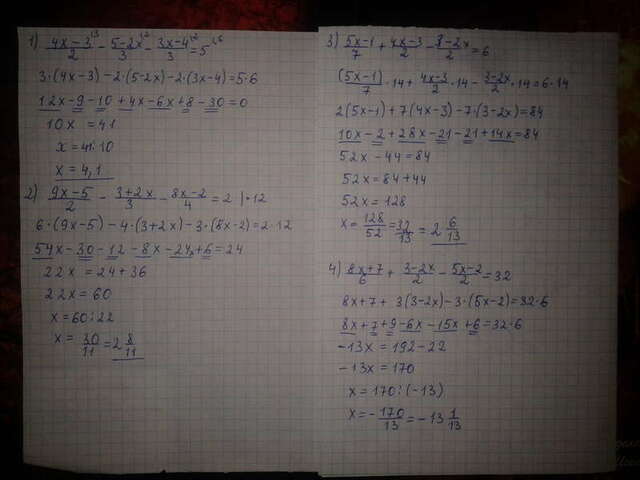 1) (4x-3)/2 ³ - (5-2x)/3 ² - (3x-4)/3 ² = 5 ⁶
3·(4x-3)-2·(5-2x)-2·(3x-4)=5·6
12x-9-10+4x-6x+8-30=0
10x = 41
x = 41:10
x = 4,1
2) (9x-5)/2 - (3+2x)/3 - (8x-2)/4 = 2 |·12
6·(9x-5)-4·(3+2x)-3·(8x-2)=2·12
54x-30-12-8x-24x+6=24
22x = 24+36
22x = 60
x = 60:22
x = 30/11 = 2 8/11
3) (5x-1)/7 + (4x-3)/2 - (3-2x)/2 = 6
(5x-1)/7 ·14 + (4x-3)/2 ·14 - (3-2x)/2 ·14 = 6·14
2(5x-1)+7(4x-3)-7·(3-2x)=84
10x-2+28x-21-21+14x=84
52x-44=84
52x=84+44
52x=128
x = 128/52 = 32/13 = 2 6/13
4) (8x+7)/6 + (3-2x)/2 - (5x-2)/2 = 32
8x+7+3(3-2x)-3·(5x-2)=32·6
8x+7+9-6x-15x+6=32·6
-13x = 192-22
-13x = 170
x = 170:(-13)
x = -170/13 = -13 1/13